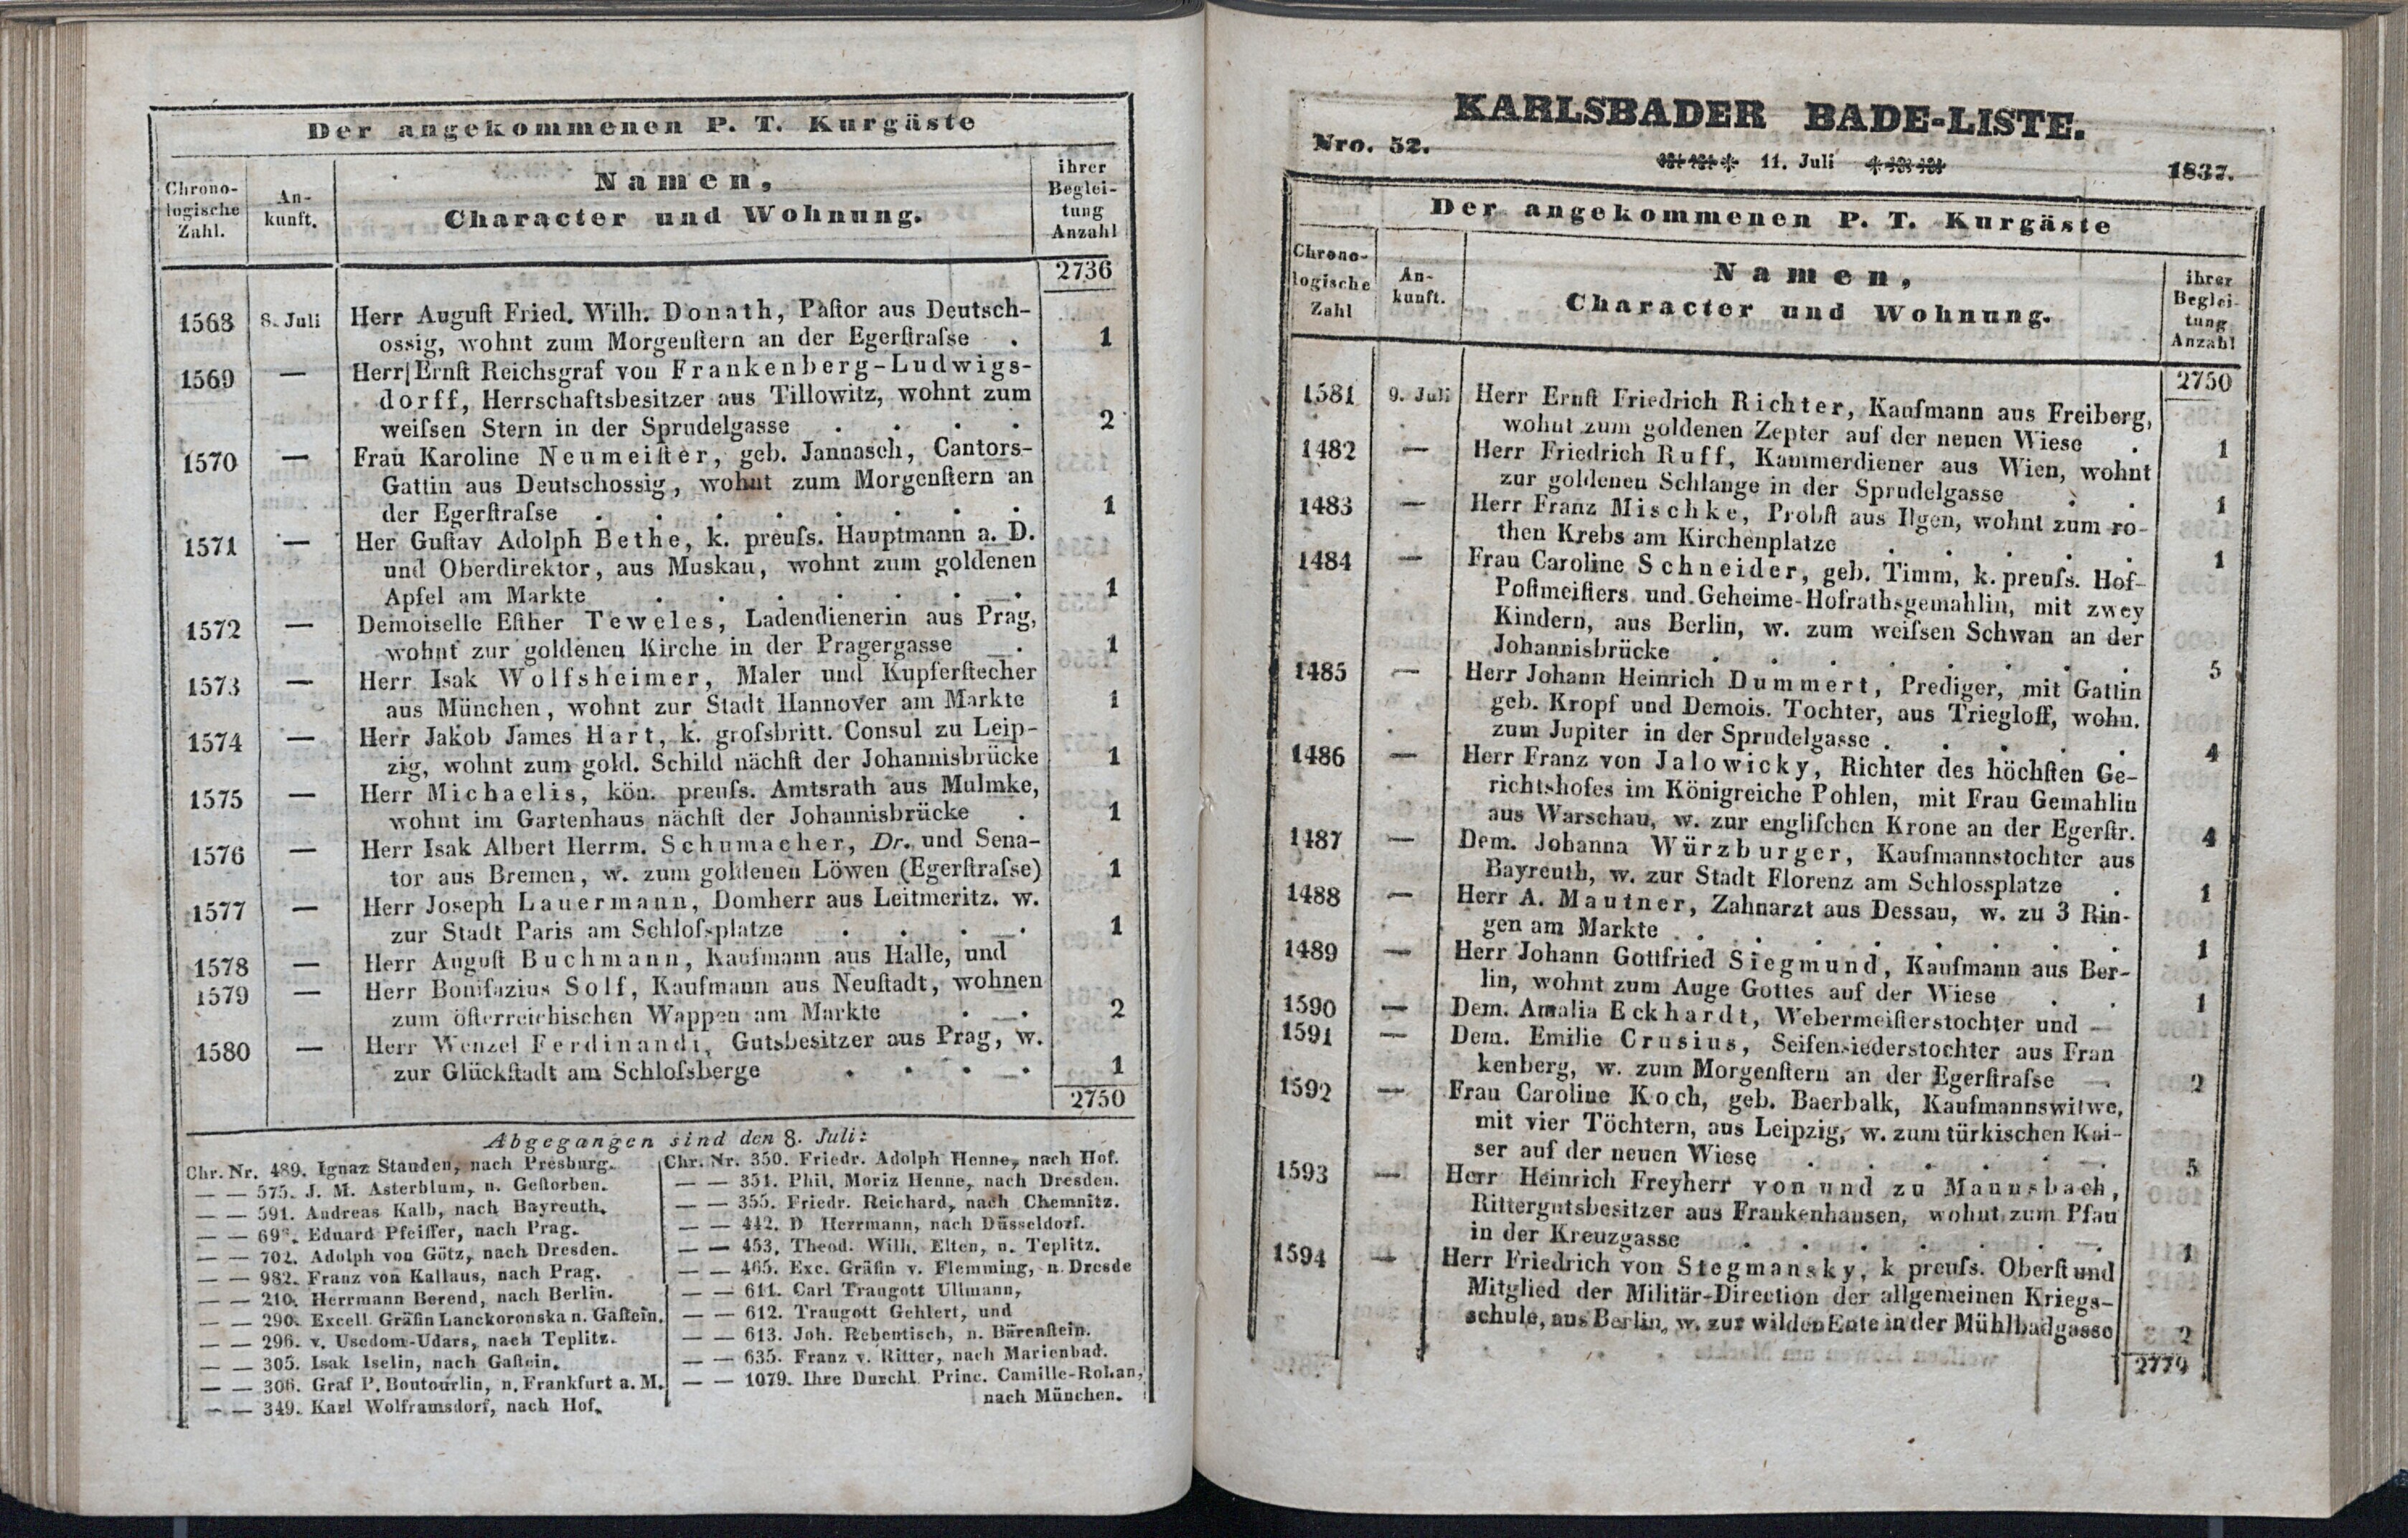 Der angekommenen P. T. Kurgäste
Chrono-
logische
Zahl.
An-
kunft.
Namen,
Character und Wohnung.
ihrer
Beglei-
tung
Anzahl
2736
1568 8. Juli Herr Auguſt Fried. Wilh. Donath, Paſtor aus Deutsch-
ossig, wohnt zum Morgenſtern an der Egerſtraſse . 1
1569 — Herr Ernſt Reichsgraf von Frankenberg-Ludwigs-
dorff, Herrschaftsbesitzer aus Tillowitz, wohnt zum
weiſsen Stern in der Sprudelgasse . . . . 2
1570 — Frau Karoline Neumeiſter, geb. Jannasch, Cantors-
Gattin aus Deutschossig, wohnt zum Morgenſtern an
der Egerſtraſse . . . . . . . . 1
1571 — Her Guſtav Adolph Bethe, k. preuſs. Hauptmann a. D.
und Oberdirektor, aus Muskau, wohnt zum goldenen
Apfel am Markte . . . . . . . 1
1572 — Demoiselle Eſther Teweles, Ladendienerin aus Prag,
wohnt zur goldenen Kirche in der Pragergasse . 1
1573 — Herr Isak Wolfsheimer, Maler und Kupferſtecher
aus München, wohnt zur Stadt Hannover am Markte 1
1574 — Herr Jakob James Hart, k. groſsbritt. Consul zu Leip-
zig, wohnt zum gold. Schild nächſt der Johannisbrücke 1
1575 — Herr Michaelis, kön. preuſs. Amtsrath aus Mulmke,
wohnt im Gartenhaus nächſt der Johannisbrücke . 1
1576 — Herr Isak Albert Herrm. Schumacher, Dr. und Sena-
tor aus Bremen, w. zum goldenen Löwen (Egerſtraſse) 1
1577 — Herr Joseph Lauermann, Domherr aus Leitmeritz. w.
zur Stadt Paris am Schloſsplatze . . . . 1
1578 — Herr Auguſt Buchmann, Kaufmann aus Halle, und
1579 — Herr Bonifazius Solf, Kaufmann aus Neuſtadt, wohnen
zum öſterreichischen Wappen am Markte . . 2
1580 — Herr Wenzel Ferdinandi, Gutsbesitzer aus Prag, w.
zur Glückſtadt am Schloſsberge . . . . 1
2750
Abgegangen sind den 8. Juli:
Chr. Nr. 489. Ignaz Standen, nach Presburg.
— — 575. J. M. Asterblum, n. Geſtorben.
— — 591. Andreas Kalb, nach Bayreuth.
— — 69 . Eduard Pfeiffer, nach Prag.
— — 702. Adolph von Götz, nach Dresden.
— — 982. Franz von Kallaus, nach Prag.
— — 210. Herrmann Berend, nach Berlin.
— — 290. Excell. Gräfin Lanckoronska n. Gaſtein.
— — 296. v. Usedom-Udars, nach Teplitz.
— — 305. Isak Iselin, nach Gaſtein.
— — 306. Graf P. Boutourlin, n. Frankfurt a. M.
— — 349. Karl Wolframsdorf, nach Hof.
Chr. Nr. 350. Friedr. Adolph Henne, nach Hof.
— — 351. Phil. Moriz Henne, nach Dresden.
— — 355. Friedr. Reichard, nach Chemnitz.
— — 442. D Herrmann, nach Düsseldorf.
— — 453. Theod. Wilh. Elten, n. Teplitz.
— — 465. Exc. Gräfin v. Flemming, n. Dresde
— — 611. Carl Traugott Ullmann,
— — 612. Traugott Gehlert, und
— — 613. Joh. Rebentisch, n. Bärenſtein.
— — 635. Franz v. Ritter, nach Marienbad.
— — 1079. Ihre Durchl. Princ. Camille-Rohan,
nach München.
KARLSBADER BADE-LISTE.
Nro. 52.
11. Juli
1837.
Der angekommenen P. T. Kurgäste
Chrono-
logische
Zahl
An-
kunft.
Namen,
Character und Wohnung.
ihrer
Beglei-
tung
Anzahl
2750
1581 9. Juli Herr Ernſt Friedrich Richter, Kaufmann aus Freiberg,
wohnt zum goldenen Zepter auf der neuen Wiese . 1
1482 — Herr Friedrich Ruff, Kammerdiener aus Wien, wohnt
zur goldenen Schlange in der Sprudelgasse . . 1
1483 — Herr Franz Mischke, Probſt aus Ilgen, wohnt zum ro-
then Krebs am Kirchenplatze . . . . . 1
1484 — Frau Caroline Schneider, geb. Timm, k. preuſs. Hof-
Poſtmeiſters und Geheime-Hofrathsgemahlin, mit zwey
Kindern, aus Berlin, w. zum weiſsen Schwan an der
Johannisbrücke . . . . . . . . 5
1485 — Herr Johann Heinrich Dummert, Prediger, mit Gattin
geb. Kropf und Demois. Tochter, aus Triegloff, wohn.
zum Jupiter in der Sprudelgasse . . . . . 4
1486 — Herr Franz von Jalowicky, Richter des höchſten Ge-
richtshofes im Königreiche Pohlen, mit Frau Gemahlin
aus Warschau, w. zur engliſchen Krone an der Egerſtr. 4
1487 — Dem. Johanna Würzburger, Kaufmannstochter aus
Bayreuth, w. zur Stadt Florenz am Schlossplatze . 1
1488 — Herr A. Mautner, Zahnarzt aus Dessau, w. zu 3 Rin-
gen am Markte . . . . . . . . 1
1489 — Herr Johann Gottfried Siegmund, Kaufmann aus Ber-
lin, wohnt zum Auge Gottes auf der Wiese . . 1
1590 — Dem. Amalia Eckhardt, Webermeiſterstochter und
1591 — Dem. Emilie Crusius, Seifensiederstochter aus Fran
kenberg, w. zum Morgenſtern an der Egerſtraſse . 2
1592 — Frau Caroline Koch, geb. Baerbalk, Kaufmannswitwe,
mit vier Töchtern, aus Leipzig, w. zum türkischen Kai-
ser auf der neuen Wiese . . . . . . 5
1593 — Herr Heinrich Freyherr von und zu Mannsbach,
Rittergutsbesitzer aus Frankenhausen, wohnt zum Pfau
in der Kreuzgasse . . . . . . . 1
1594 — Herr Friedrich von Stegmansky, k preuſs. Oberſt und
Mitglied der Militär-Direction der allgemeinen Kriegs-
schule, aus Berlin, w. zur wilden Ente in der Mühlbadgasse 2
2779